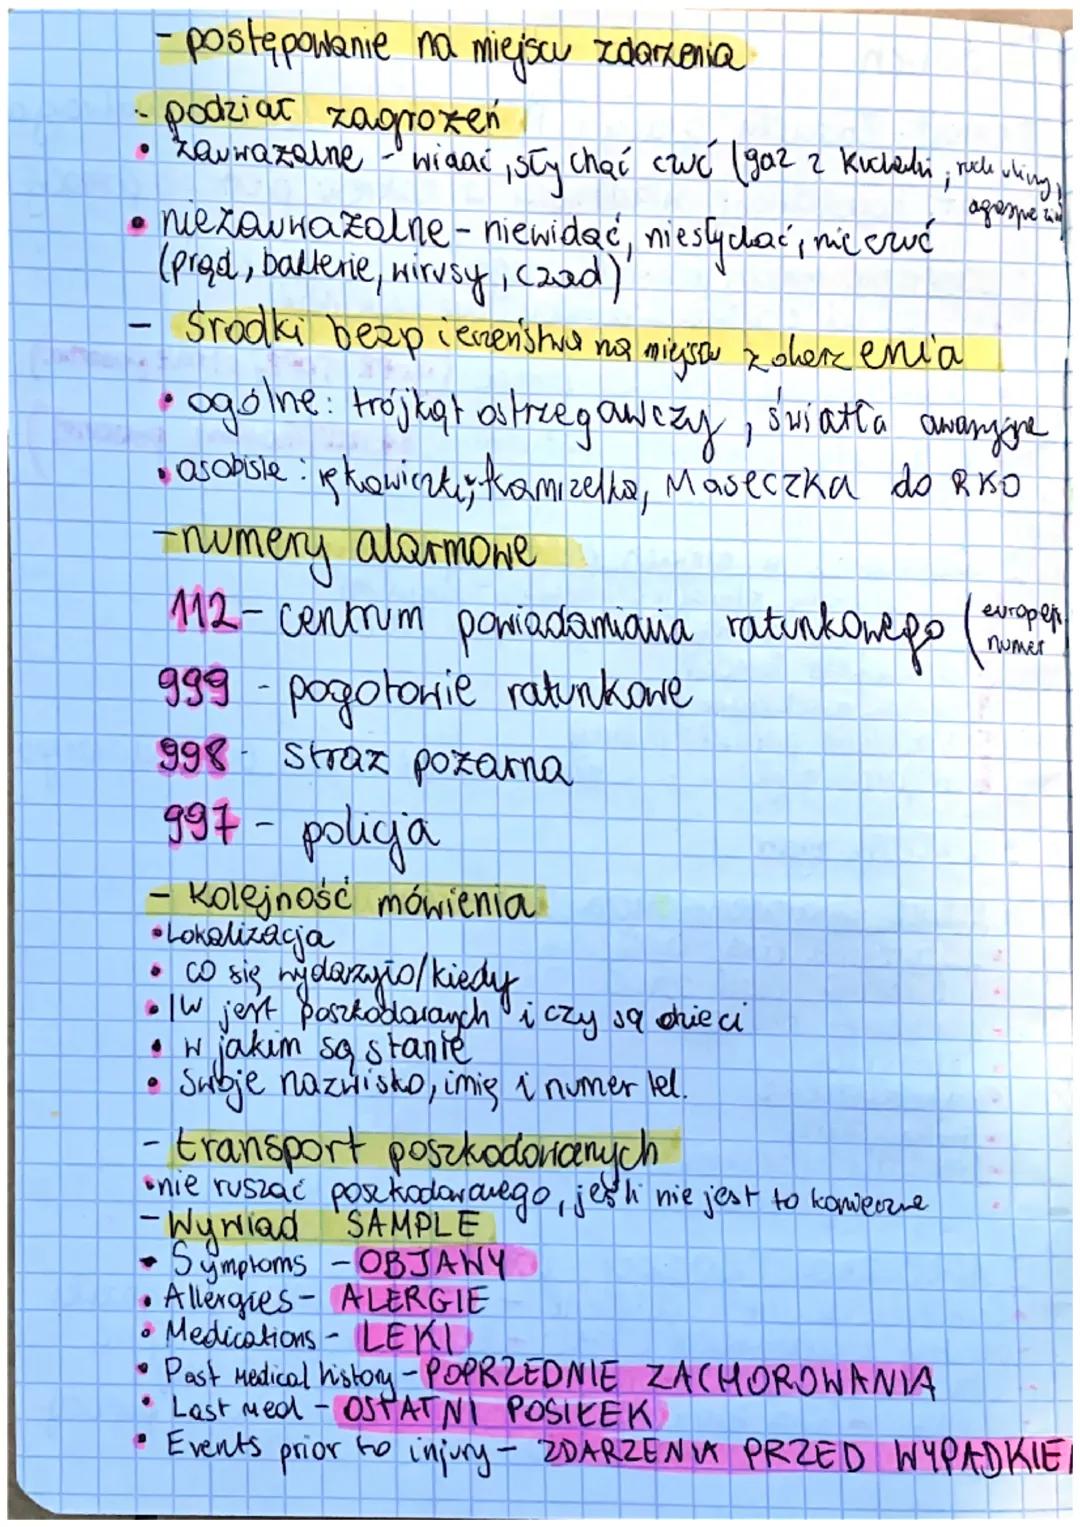 - postępowanie na miejscu zdarzenia
- podział zagrożeń
• zauważalne - widać, słychać czuć (gaz z kuchenki, ruch uliczny,
• niezauważalne - niewidać, niesłychać, nic czuć
(prąd, bakterie, wirusy, czad)
- Środki bezpieczeństwa na miejscu zdarzenia
• ogólne: trójkąt ostrzegawczy, światła awaryjne
• osobiste: rękawiczki, kamizelka, Maseczka do RKO
- numery alarmowe
112 - centrum powiadamiania ratunkowego (europejs
numer
999 - pogotowie ratunkowe
998 - straż pożarna
997 - policja
- Kolejność mówienia
• Lokalizacja
• co się wydarzyło/kiedy
• Ilu jest poszkodowanych i czy są dzieci
• w jakim są stanie
• Swoje nazwisko, imię i numer tel.
- transport poszkodowanych
• nie ruszać poszkodowanego, jeśli nie jest to konieczne
- Wywiad SAMPLE
• Symptoms - OBJAWY
• Allergies - ALERGIE
• Medications - LEKI
• Past Medical history - POPRZEDNIE ZACHOROWANIA
• Last meal - OSTATNI POSIŁEK
• Events prior to injury - ZDARZENIA PRZED WYPADKIE